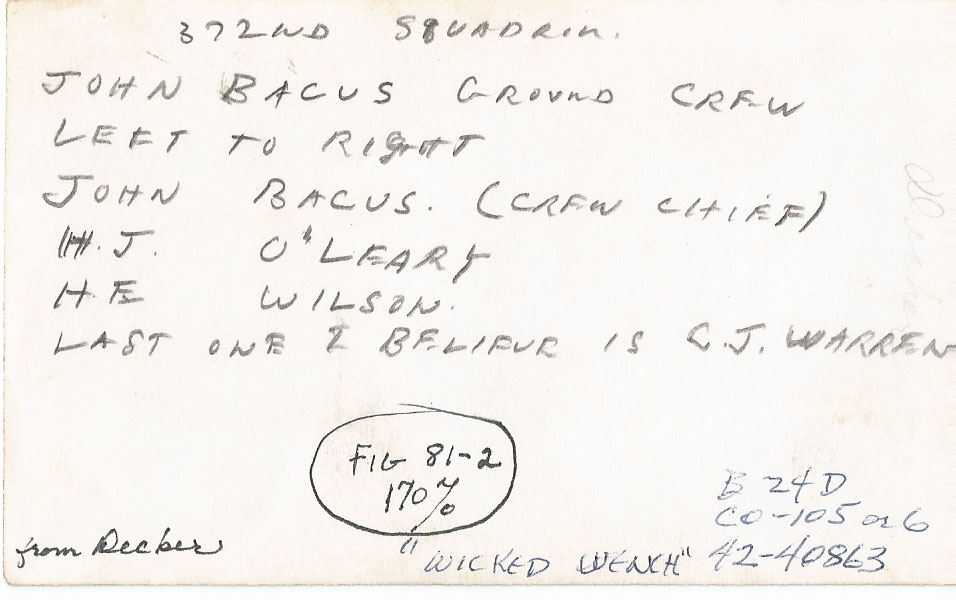 372ND SQUADRIN.
JOHN BACUS GROUND CREW
LEFT TO RIGHT
JOHN BACUS. (CREW CHIEF)
H.J. O'LEARY
H.E WILSON.
LAST ONE I BELIEUE IS C.J. WARREN
FIG 81-2
170%
B 24D
CO-105 or 6
from Decker
"WICKED WENCH" 42-40863